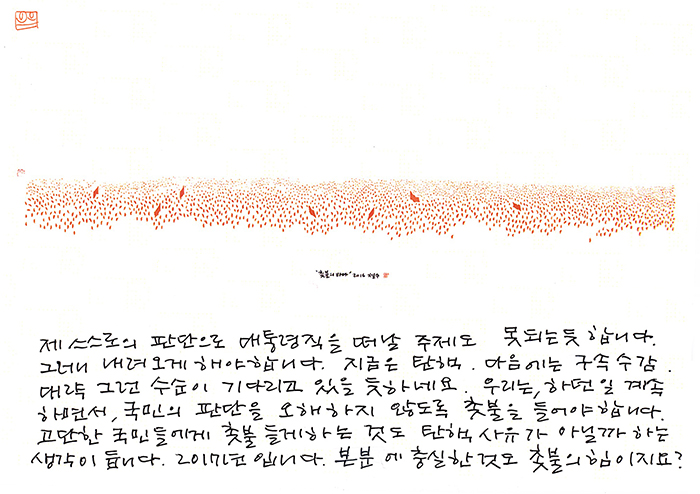 "촛불의 바다" 2016
제 스스로의 판단으로 대통령직을 떠날 주제도 못되는듯 합니다.
그러니 내려오게 해야합니다. 지금은 탄핵. 다음에는 구속수감.
대략 그런 수순이 기다리고 있을 듯하네요. 우리는, 하던 일 계속
하면서, 국민의 판단을 오해하지 않도록 촛불을 들어야합니다.
고단한 국민들에게 촛불 들게하는 것도 탄핵 사유가 아닐까 하는
생각이 듭니다. 2017년 입니다. 본분에 충실한 것도 촛불의 힘이지요?